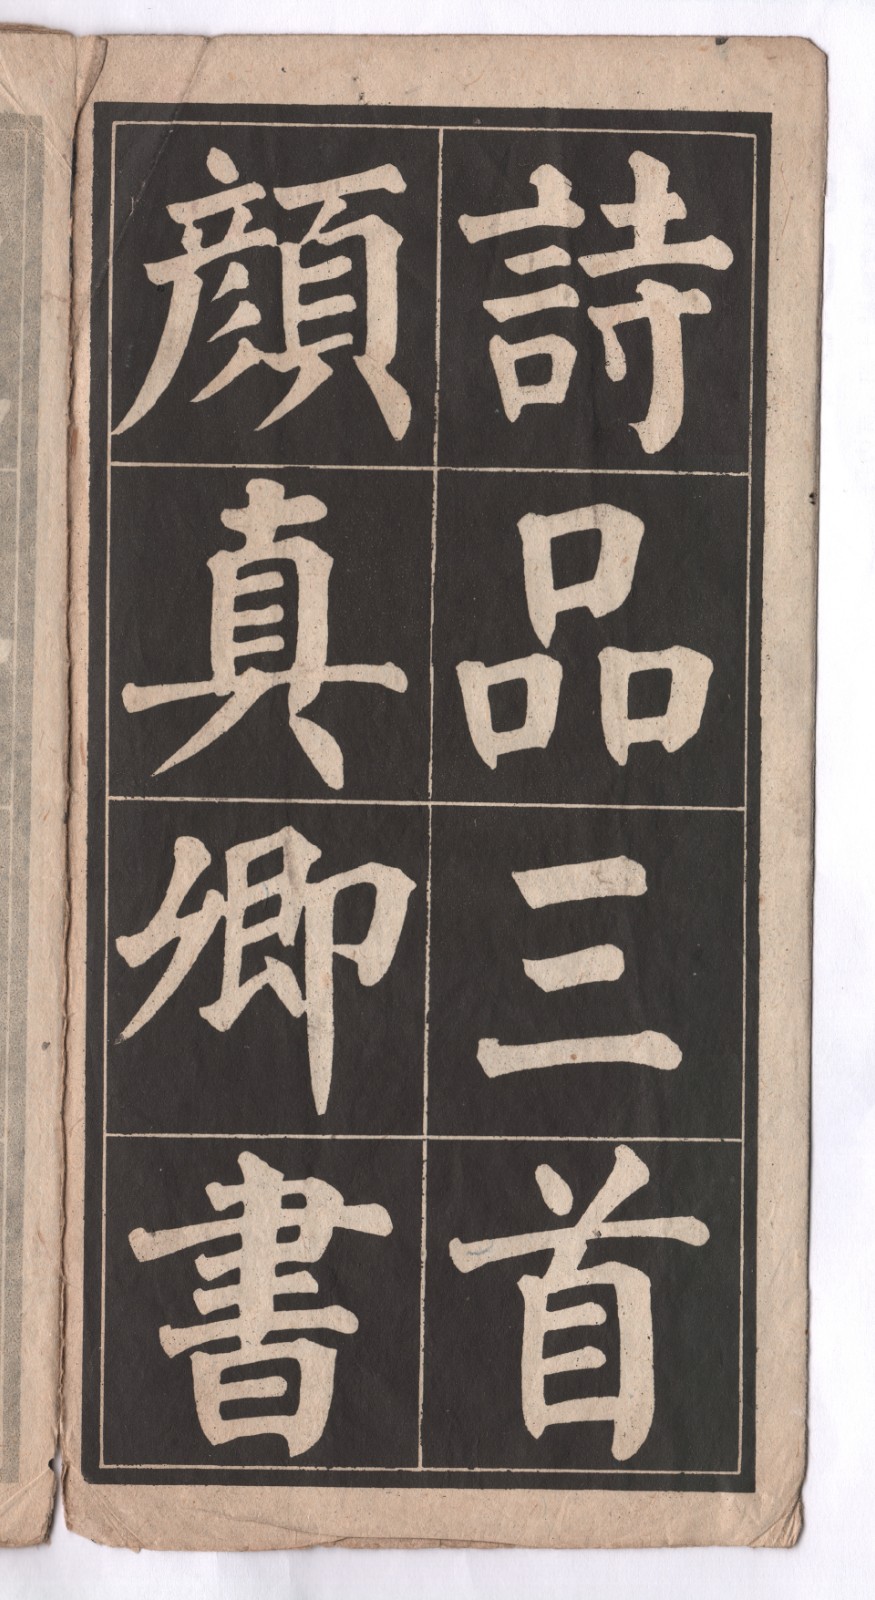 詩品三首
顔真卿書